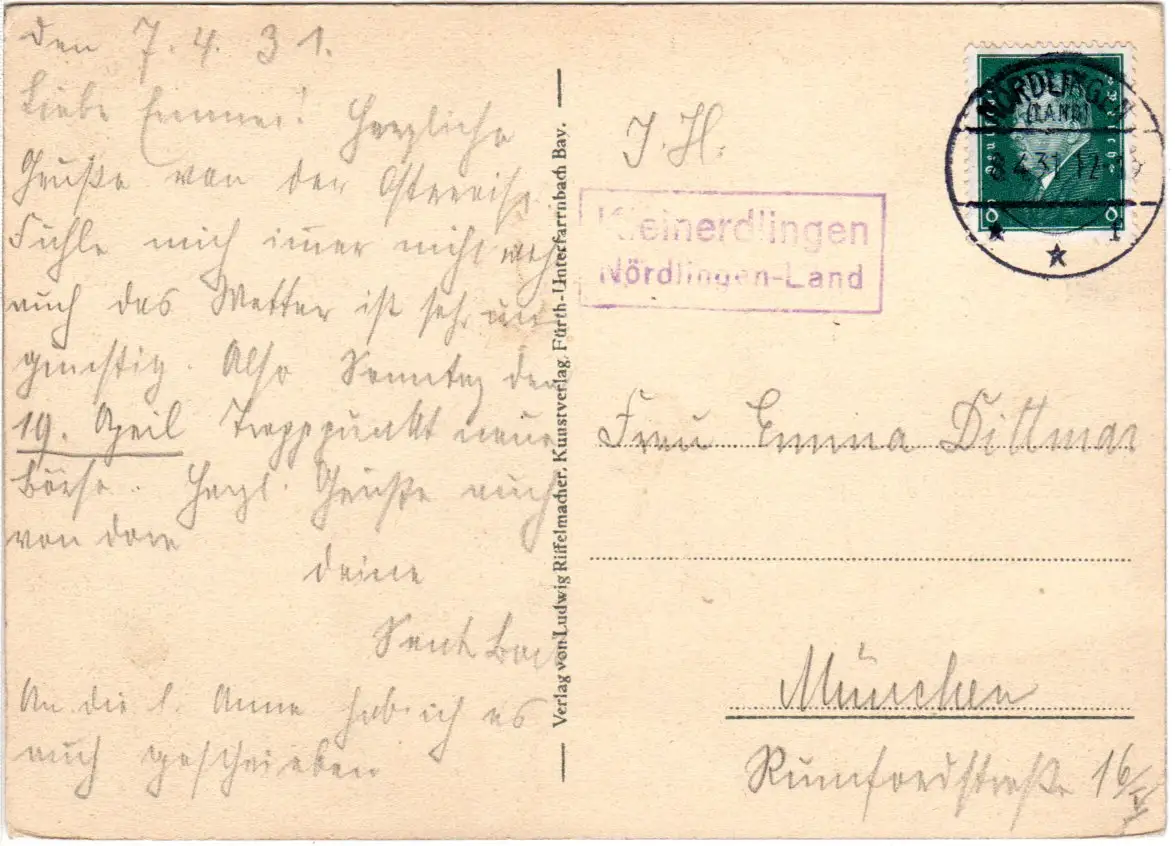 den 7. 4. 31.
Liebe Emma! Herzliche
Grüße von der Osterreise.
Fühle mich imer nicht
auch das Wetter ist sehr un
günstig. Also Sonntag den
19. April Treffpunkt neue
Börse. Herzl. Grüße auch
von
deine
An die l. Anna hab ich es
auch geschrieben
Verlag von Ludwig Riffelmacher, Kunstverlag, Fürth-Unterfarrnbach Bay.
J. H.
Kleinerdlingen
Nördlingen-Land
NÖRDLINGEN
(LAND)
8.4.31. 12-
* * f
Deutsches Reich
8 8
Frau Emma Dittmar
München
Rumfordstraße 16/